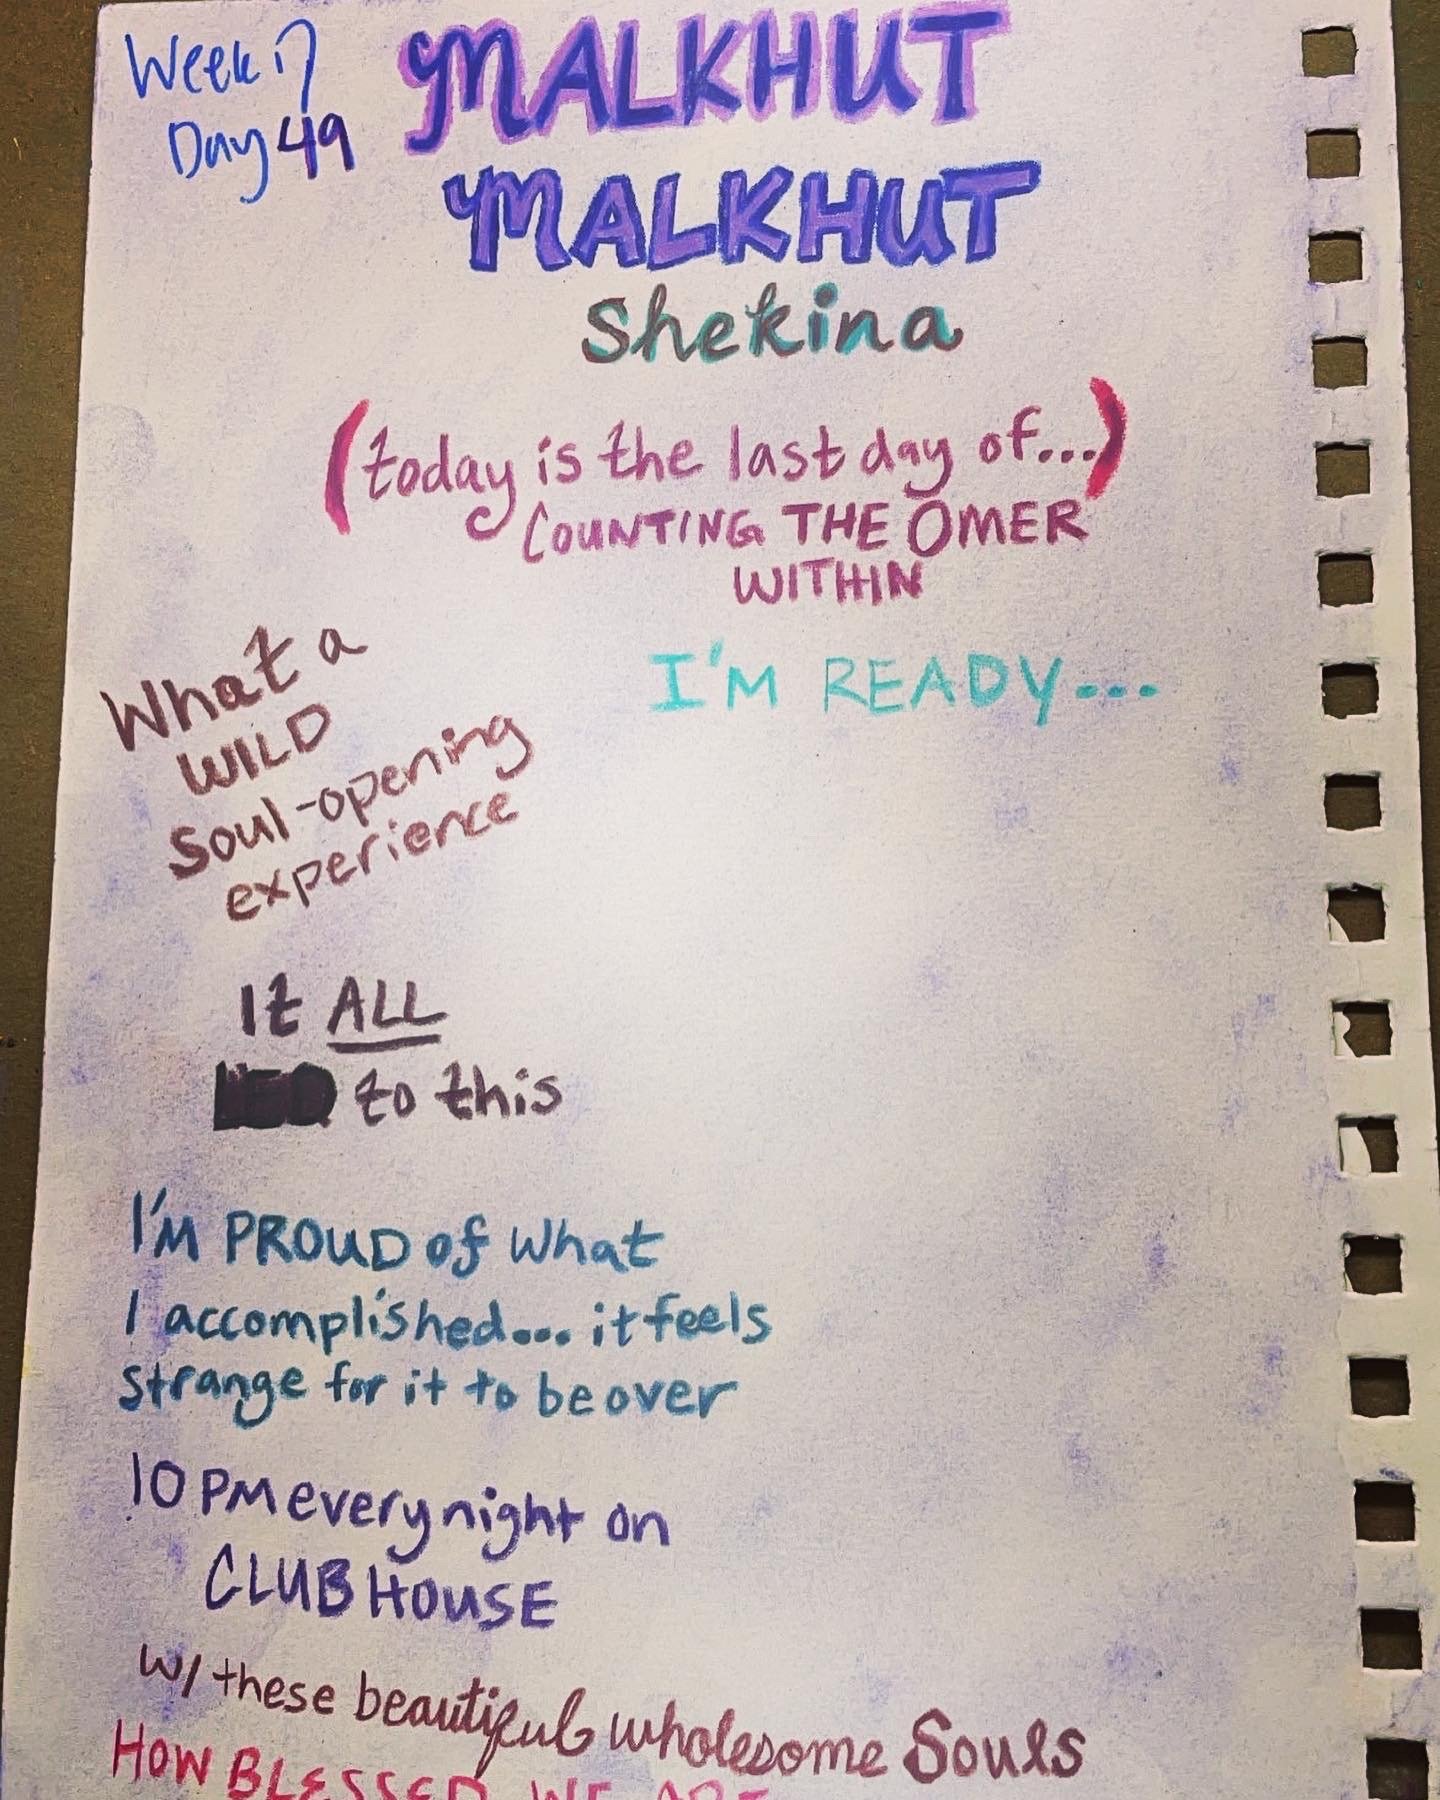 Week 7
Day 49
MALKHUT
MALKHUT
Shekina
(today is the last day of...)
COUNTING THE OMER
WITHIN
I'M READY...
What a
WILD
Soul-opening
experience
It ALL
LED to this
I'M PROUD of what
I accomplished... it feels
strange for it to be over
10 PM every night on
CLUBHOUSE
w/ these beautiful wholesome Souls
HOW BLESSED WE ARE